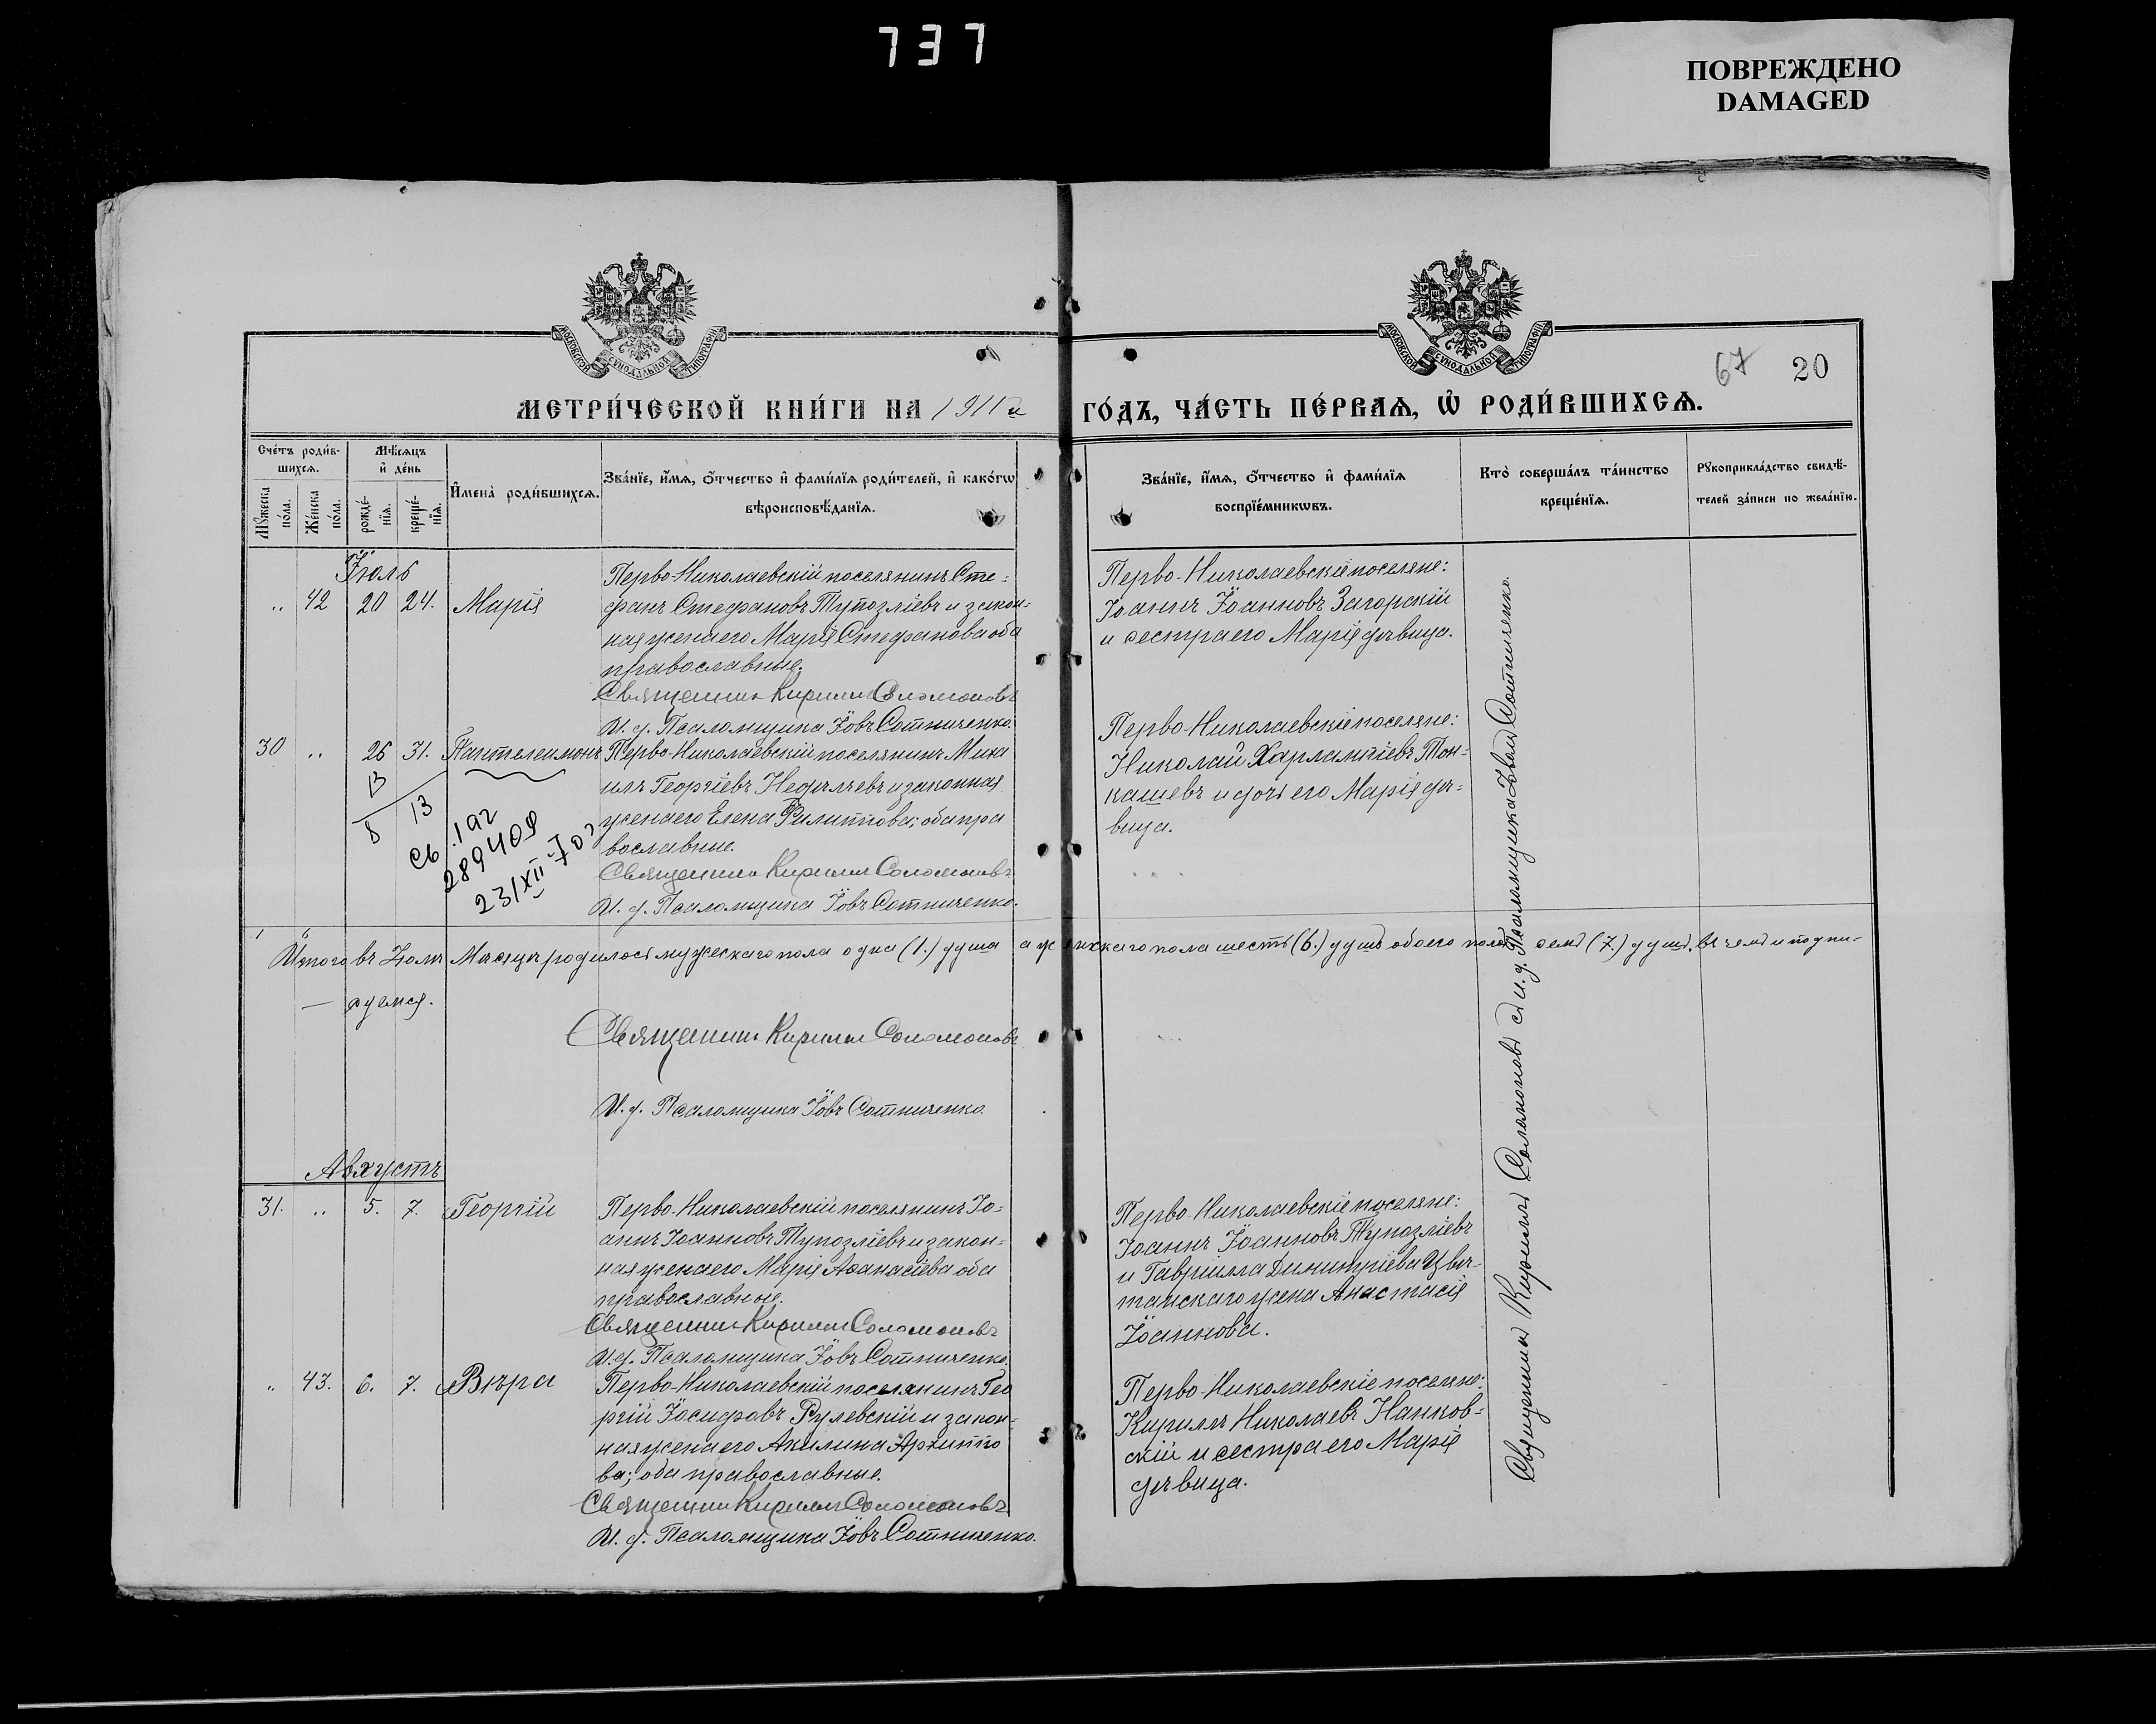 737
ПОВРЕЖДЕНО
DAMAGED
МОСКОВСКОЙ СѴНОДАЛЬНОЙ ТИПОГРАФІИ
МОСКОВСКОЙ СѴНОДАЛЬНОЙ ТИПОГРАФІИ
67 20
МЕТРИ́ЧЕСКОЙ КНИ́ГИ НА 1911й ГО́ДЪ, ЧА́СТЬ ПЕ́РВАѦ, Ѡ҆ РОДИ́ВШИХСѦ.
Сче́тъ роди́вшихсѧ.
Мꙋ́жеска по́ла.
Же́нска по́ла.
Мѣ́сѧцъ и҆ де́нь
рожде́нїѧ.
креще́нїѧ.
И҆мена̀ роди́вшихсѧ.
Зва́нїе, и҆́мѧ, ѻ҆́тчество и҆ фами́лїѧ роди́телей, и҆ како́гѡ
вѣроисповѣ́данїѧ.
Зва́нїе, и҆́мѧ, ѻ҆́тчество и҆ фами́лїѧ
воспрїе́мникѡвъ.
Кто̀ соверша́лъ та́инство
креще́нїѧ.
Рꙋкоприкла́дство свидѣ́-
телей за́писи по жела́нїю.
Іюль
.. 42 20 24. Марія
Перво-Николаевскій поселянинъ Сте=
фанъ Стефановъ Тупозліевъ и закон=
ная жена его Марія Стефанова оба
православные.
Священникъ Кириллъ Соломоновъ
И. д. Псаломщика Іовъ Сотниченко.
Перво-Николаевскіе поселяне:
Іоаннъ Іоанновъ Загорскій
и сестра его Марія дѣвица.
30 .. 26 31. Пантелеимонъ
Перво-Николаевскій поселянинъ Миха
илъ Георгіевъ Недѣлчевъ и законная
жена его Елена Филиппова; оба пра
вославные.
Священникъ Кириллъ Соломоновъ
И. д. Псаломщика Іовъ Сотниченко.
Перво-Николаевскіе поселяне:
Николай Харлампіевъ Тон-
кашевъ и дочь его Марія дѣ=
вица.
13
8 13
289409
23/XII-70г
Итого въ Іюлѣ Мѣсяцѣ родилось мужескаго пола одна (1.) душа а женскаго пола шесть (6.) душъ обоего пола семь (7.) душъ, въ чемъ и подпи-
— суемся.
Священникъ Кириллъ Соломоновъ
И. д. Псаломщика Іовъ Сотниченко.
Августъ
31. .. 5. 7. Георгій
Перво-Николаевскій поселянинъ Іо=
аннъ Іоанновъ Тупозліевъ и закон=
ная жена его Марія Аѳанасіева оба
православные.
Священникъ Кириллъ Соломоновъ
И. д. Псаломщика Іовъ Сотниченко.
Перво-Николаевскіе поселяне:
Іоаннъ Іоанновъ Тупозліевъ
и Гавріила Димитріева Цвѣ-
танскаго жена Анастасія
Іоаннова.
.. 43. 6. 7. Вѣра
Перво-Николаевскій поселянинъ Гео
ргій Іосифовъ Рулевскій и закон=
ная жена его Акилина Архиппо
ва; оба православные.
Священникъ Кириллъ Соломоновъ
И. д. Псаломщика Іовъ Сотниченко.
Перво-Николаевскіе поселяне:
Кириллъ Николаевъ Нанков=
скій и сестра его Марія
дѣвица.
Священникъ Кириллъ Соломоновъ съ и. д. Псаломщика Іовомъ Сотниченко.